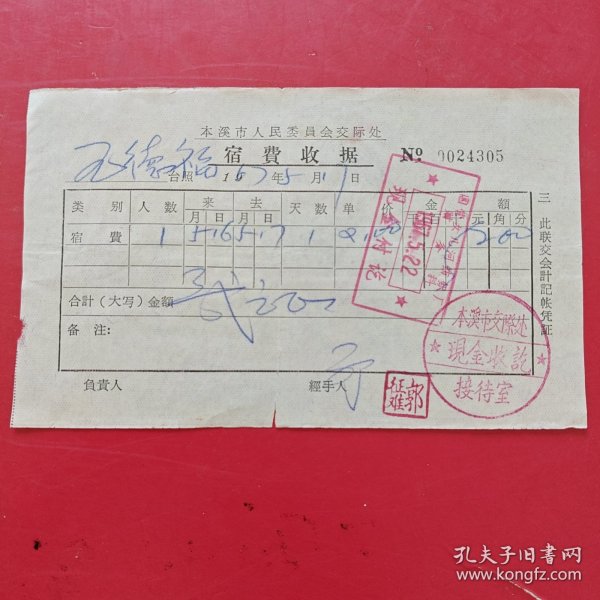 本溪市人民委員会交际处
宿費收据 No. 0024305
德福 台照 1967年5月17日
类別 人数 来 去 天数 单价 金額
月 日 月 日 元 角 分
宿費 1 5 16 5 17 1 2.00 2 00
合計（大写）金額 贰元
备注：
負責人 經手人
三 此联交会計記帐凭証
現金付讫
1967.5.22
本溪市交際处
現金收訖
接待室
郭
孔夫子旧書网
www.kongfz.com